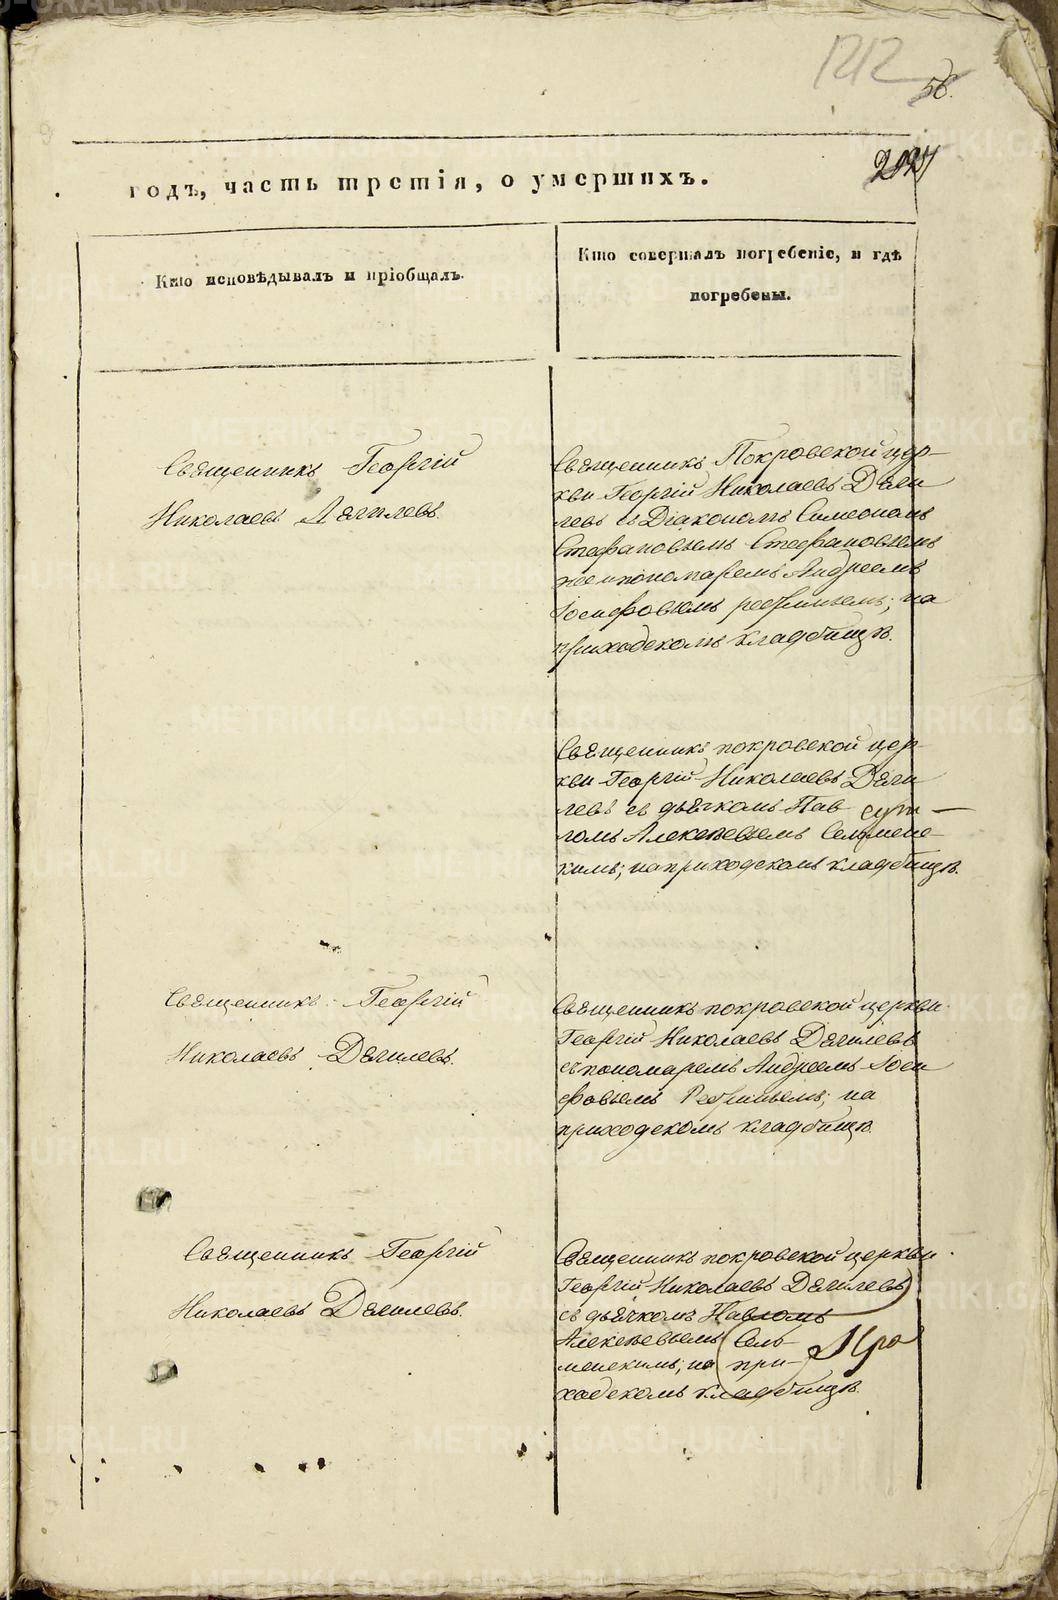 1212
56.
годъ, часть третія, о умершихъ.
Кто исповѣдывалъ и пріобщалъ.
Кто совершалъ погребеніе, и гдѣ
погребены.
Священникъ Георгій
Николаевъ Дягилевъ.
Священникъ Покровской цер-
кви Георгій Николаевъ Дяги
левъ съ Діакономъ Симеономъ
Стефановымъ Стефановымъ
же и пономаремъ Андреемъ
Іосифовымъ; на
приходскомъ кладбищѣ.
Священникъ покровской цер-
кви Георгій Николаевъ Дяги
левъ съ дьячкомъ Пав
ломъ Алексѣевымъ Сельмен-
кимъ; на приходскомъ кладбищѣ.
Священникъ Георгій
Николаевъ Дягилевъ.
Священникъ покровской церкви
Георгій Николаевъ Дягилевъ
съ пономаремъ Андреемъ Іоси
фовымъ; на
приходскомъ кладбищѣ.
Священникъ Георгій
Николаевъ Дягилевъ.
Священникъ покровской церкви
Георгій Николаевъ Дягилевъ
съ дьячкомъ Павломъ
Алексѣевымъ Сель-
менскимъ; на при-
ходскомъ кладбищѣ.
METRIKI.GASO-URAL.RU